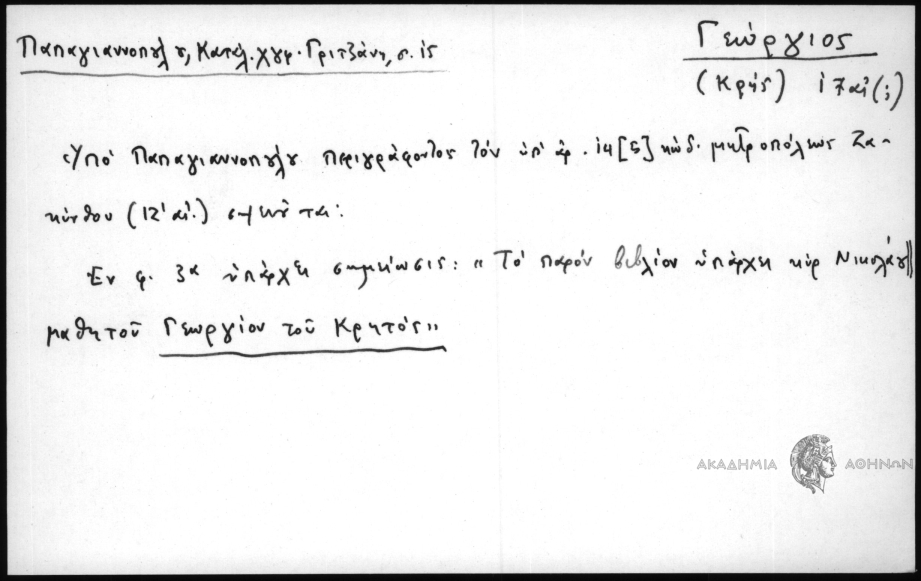 Παπαγιαννοπούλου, Κατάλ. χγφ. Γριτζάνη, σ. ις
Γεώργιος
(Κρής) ιζ αἰ(;)
Ὑπό Παπαγιαννοπούλου περιγράφοντος τόν ὑπ' ἀρ. 14 [5] κώδ. μητροπόλεως Ζα-
κύνθου (12' αἰ.) σημειοῦται:
Ἐν φ. 3α ὑπάρχει σημείωσις: "Τό παρόν βιβλίον ὑπάρχει κύρ Νικολάου||
μαθητοῦ Γεωργίου τοῦ Κρητός"
ΑΚΑΔΗΜΙΑ ΑΘΗΝΩΝ